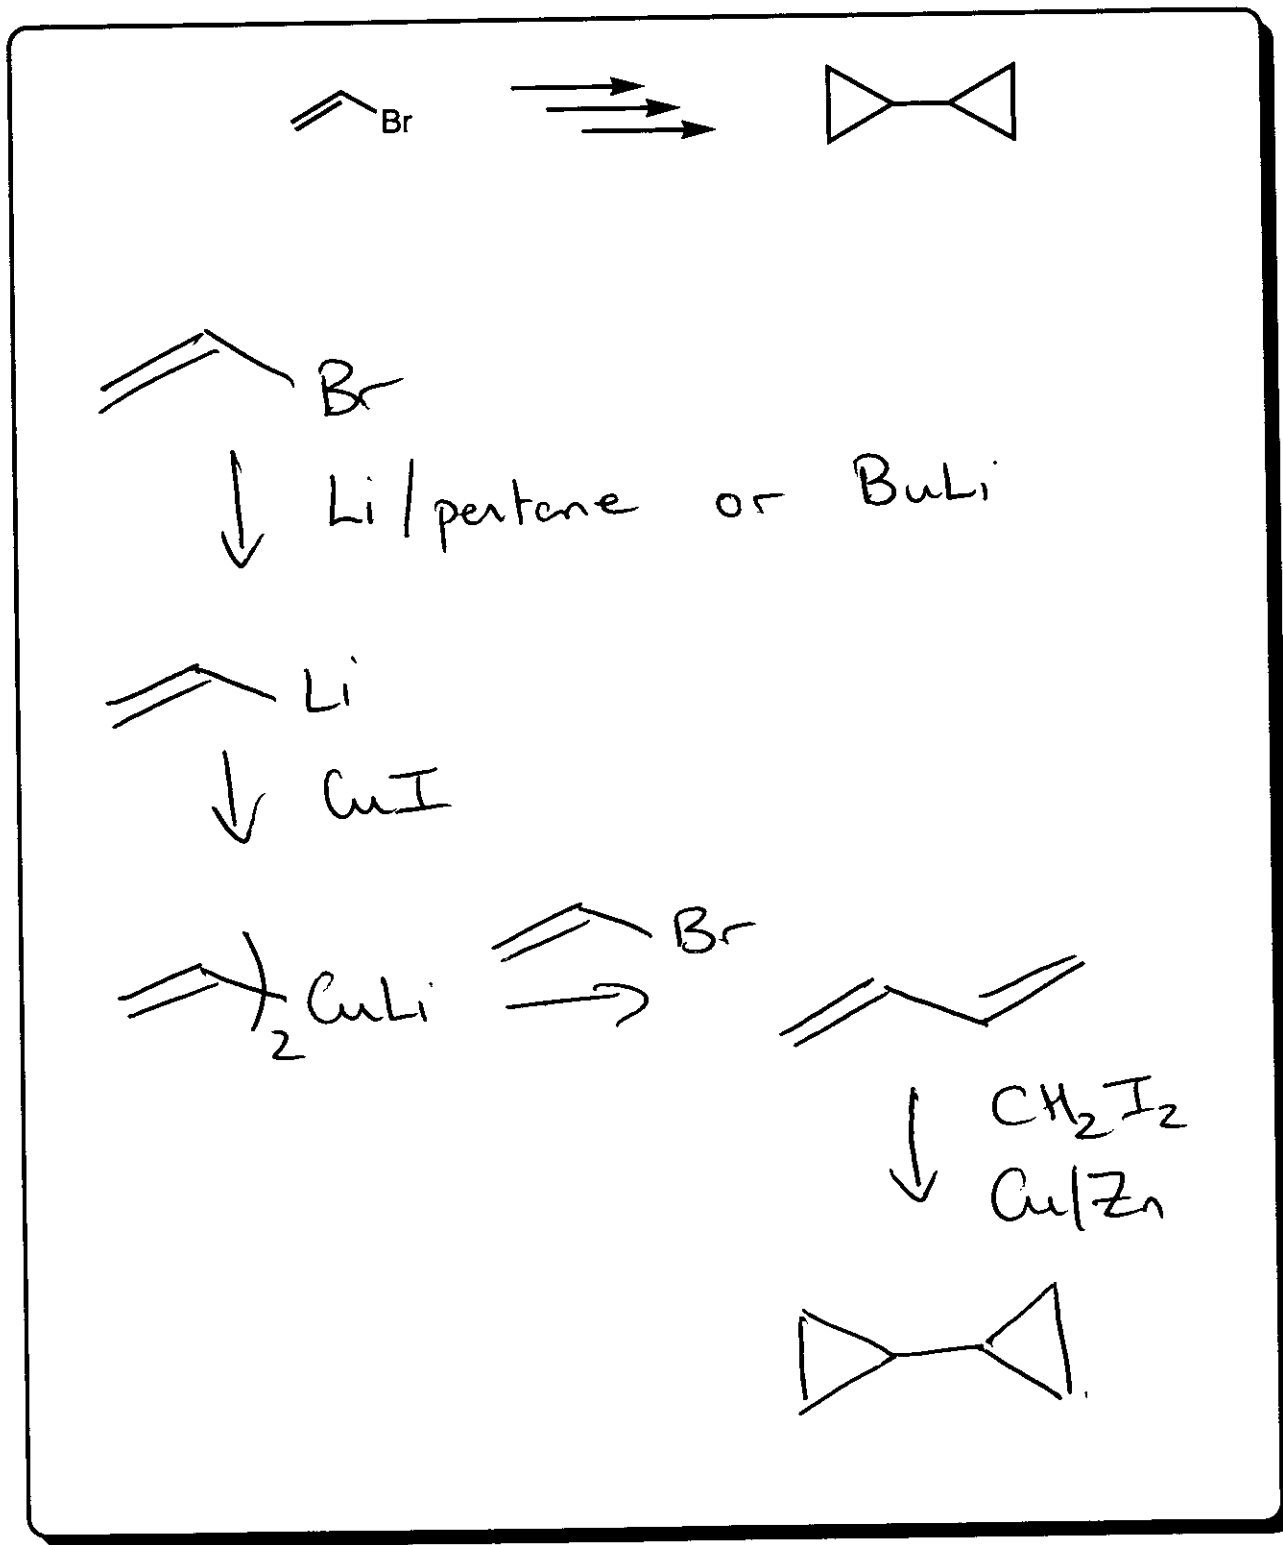 Br
Br
Li/pentane or BuLi
Li
CuI
Br
)2 CuLi
CH2I2
Cu/Zn